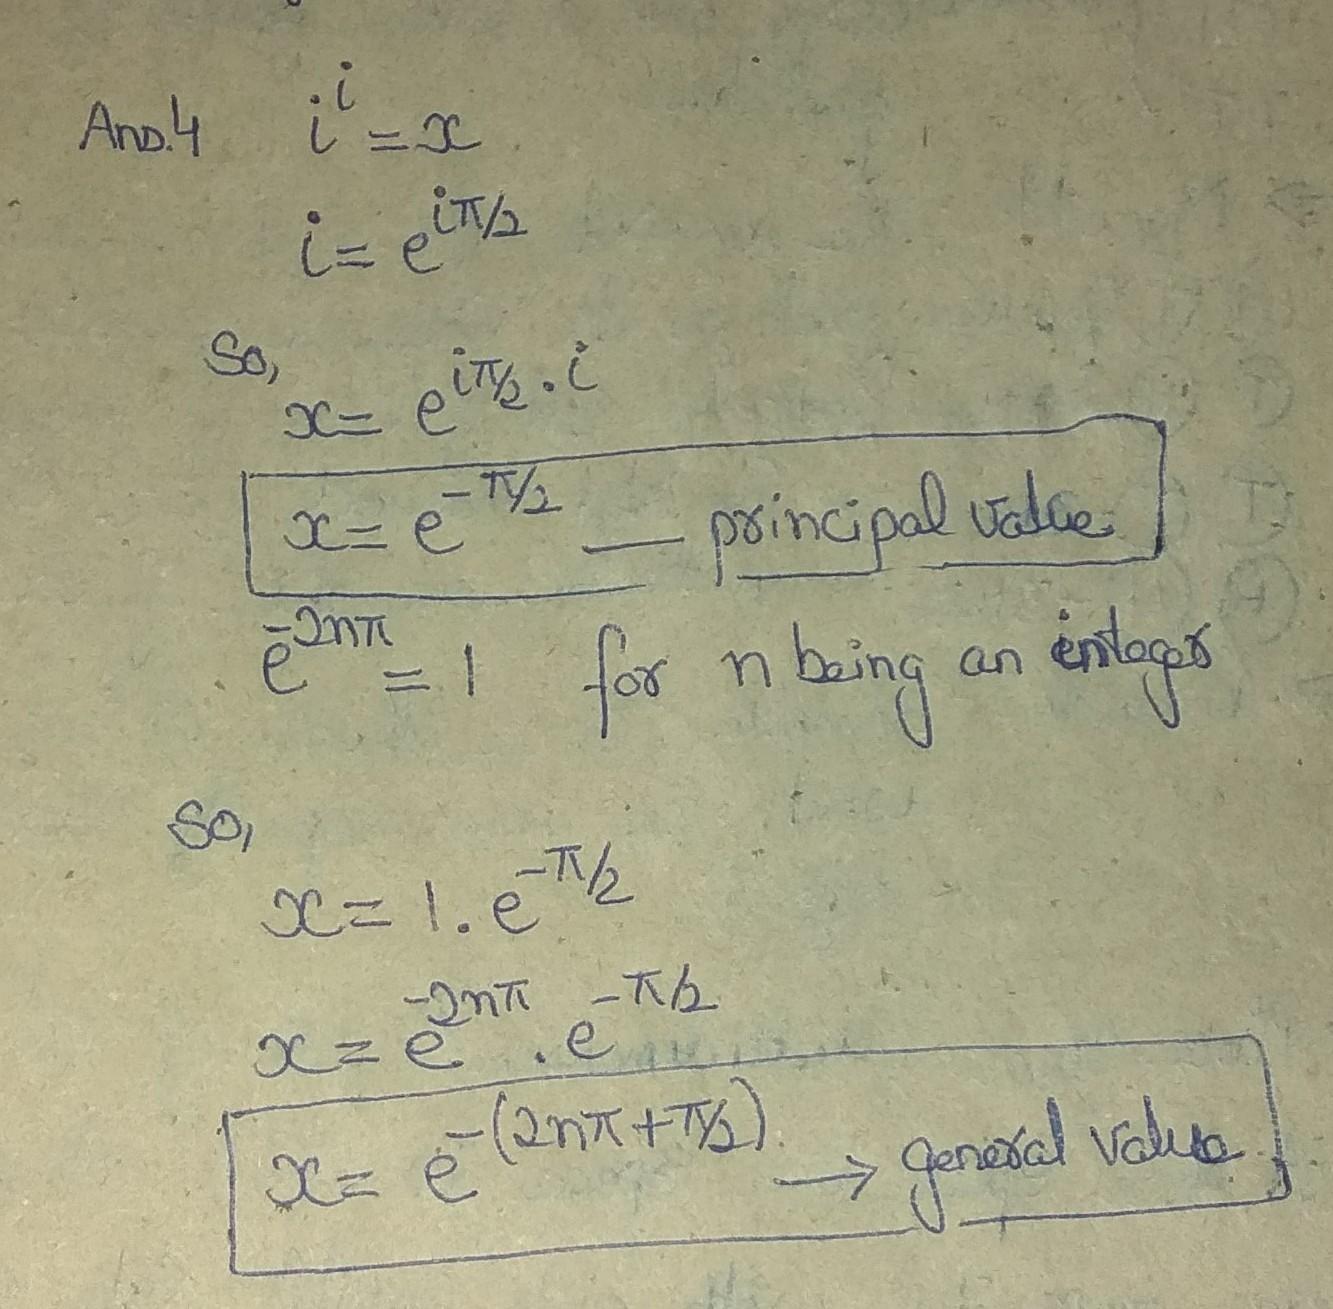 Ans.4 i^i = x
i = e^{iπ/2}
So,
x = e^{iπ/2 . i}
x = e^{-π/2} — principal value
e^{-2nπ} = 1 for n being an integer
So,
x = 1 . e^{-π/2}
x = e^{-2nπ} . e^{-π/2}
x = e^{-(2nπ+π/2)} → general value